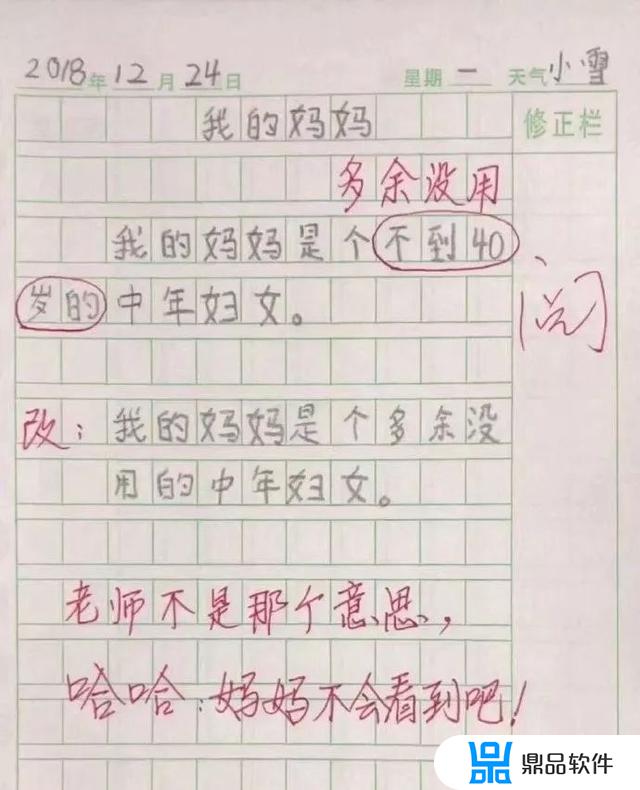 2018年12月24日 星期一 天气小雪
我的妈妈
修正栏
多余没用
我的妈妈是个不到40
岁的中年妇女。
阅
改：我的妈妈是个多余没
用的中年妇女。
老师不是那个意思，
哈哈：妈妈不会看到吧！
鼎品软件